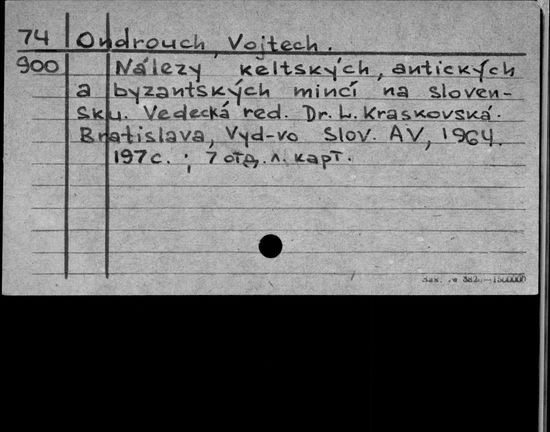 74 Ondrouch, Vojtech.
900 Nálezy keltských, antických
a byzantských mincí na sloven-
sku. Vedecká red. Dr. L. Kraskovská.
Bratislava, Vyd-vo Slov. AV, 1964.
197 с. ; 7 отд. л. карт.